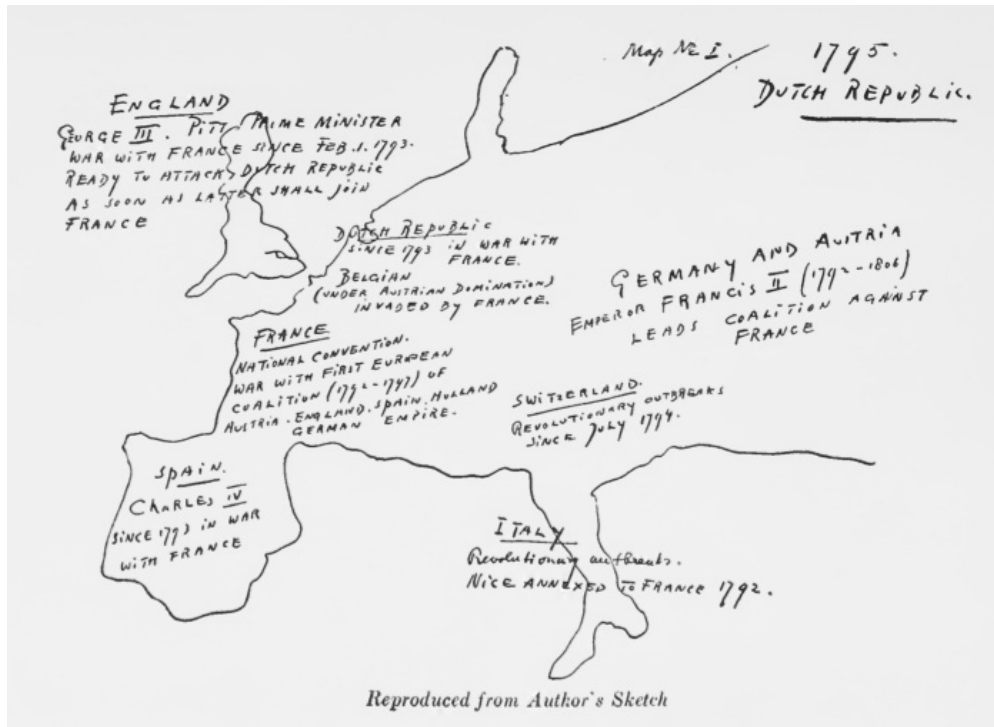 Map No I.
1795.
DUTCH REPUBLIC.
ENGLAND
GEORGE III. PITT PRIME MINISTER
WAR WITH FRANCE SINCE FEB. 1. 1793.
READY TO ATTACK DUTCH REPUBLIC
AS SOON AS LATTER SHALL JOIN
FRANCE
DUTCH REPUBLIC
SINCE 1793 IN WAR WITH
FRANCE.
BELGIAN
(UNDER AUSTRIAN DOMINATION)
INVADED BY FRANCE.
GERMANY AND AUSTRIA
EMPEROR FRANCIS II (1792-1806)
LEADS COALITION AGAINST
FRANCE
FRANCE
NATIONAL CONVENTION.
WAR WITH FIRST EUROPEAN
COALITION (1792-1797) OF
AUSTRIA. ENGLAND. SPAIN. HOLLAND
GERMAN EMPIRE.
SWITZERLAND.
REVOLUTIONARY OUTBREAKS
SINCE JULY 1794.
SPAIN.
CHARLES IV
SINCE 1793 IN WAR
WITH FRANCE
ITALY
Revolutionary outbreaks.
NICE ANNEXED TO FRANCE 1792.
Reproduced from Author's Sketch